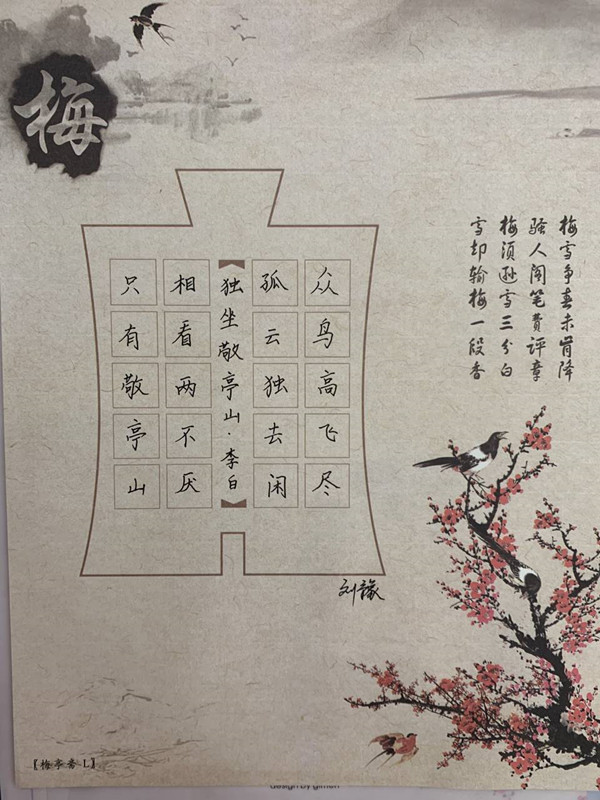 梅
梅雪争春未肯降
骚人阁笔费评章
梅须逊雪三分白
雪却输梅一段香
众鸟高飞尽
孤云独去闲
独坐敬亭山·李白
相看两不厌
只有敬亭山
刘
【梅亭香·L】
design by